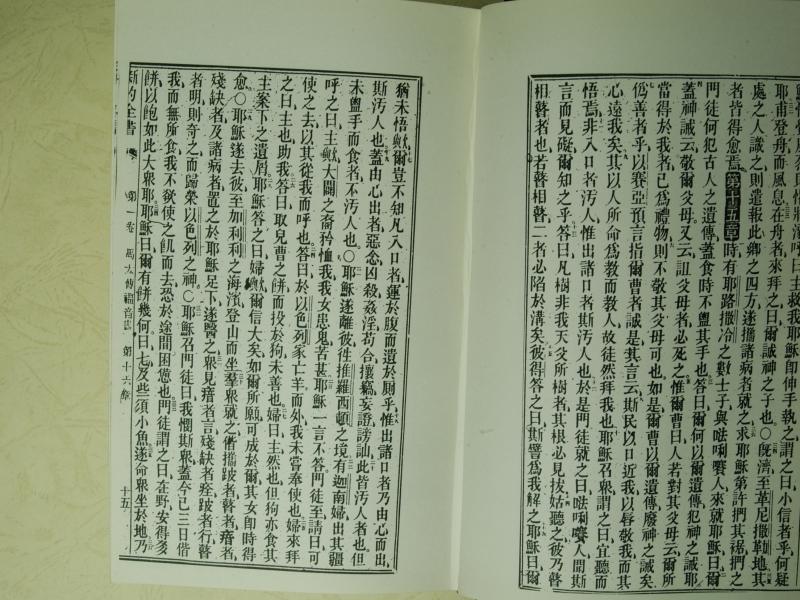 將溺呼曰主救我耶穌即伸手執之謂之曰小信者乎何疑
耶甫登舟而風息在舟者來拜之曰爾誠神之子也○既濟至革尼撒勒地其
處之人識之則遣報此鄉之四方遂攜諸病者就之求耶穌第許捫其裾捫之
者皆得愈焉第十五章時有耶路撒冷之數士子與唎人來就耶穌曰爾
門徒何犯古人之遺傳蓋食時不盥其手也答曰爾何以爾遺傳犯神之誡耶
蓋神誡云敬爾父母又云詛父母者必死之惟爾曹曰人若對其父母云爾所
當得於我者已爲禮物則不敬其父母可也如是爾曹以爾遺傳廢神之誡矣
僞善者乎以賽亞預言指爾曹者誠是其言云斯民以口近我以唇敬我而其
心遠我矣其以人所命爲教而教人故徒然拜我也耶穌召衆謂之曰宜聽而
悟焉非入口者汚人惟出諸口者斯汚人也於是門徒就之曰唎人聞斯
言而見礙爾知之乎答曰凡樹非我天父所樹者其根必見拔姑聽之彼乃瞽
相瞽者也若瞽相瞽二者必陷於溝矣彼得答之曰斯譬爲我解之耶穌曰爾
猶未悟歟爾豈不知凡入口者運於腹而遺於厠乎惟出諸口者乃由心而出
斯汚人也蓋由心出者惡念凶殺姦淫苟合攘竊妄證謗訕此皆汚人者也但
未盥手而食者不汚人也○耶穌遂離彼徃推羅西頓之境有迦南婦出其疆
呼之曰主歟大闢之裔矜恤我我女患鬼苦甚耶穌一言不答門徒至請曰可
使之去以其從我而呼也答曰於以色列家亡羊而外我未嘗奉使也婦來拜
之曰主也助我答曰取兒曹之餅而投於狗未善也婦曰主然也但狗亦食其
主案下之遺屑耶穌答之曰婦歟爾信大矣如爾所願可成於爾其女卽時得
愈○耶穌遂去彼至加利利之海濱登山而坐羣衆就之偕攜跛者瞽者瘖者
殘缺者及諸病者置之於耶穌足下遂醫之衆見瘖者言殘缺者痊跛者行瞽
者明則奇之而歸榮以色列之神○耶穌召門徒曰我憫斯衆蓋今已三日偕
我而無所食我不欲使之飢而去恐於途間困憊也門徒謂之曰在野安得多
餅以飽如此大衆耶耶穌曰爾有餅幾何曰七及些須小魚遂命衆坐於地乃
新約全書 第一卷 馬太傳福音書 第十六章 十五